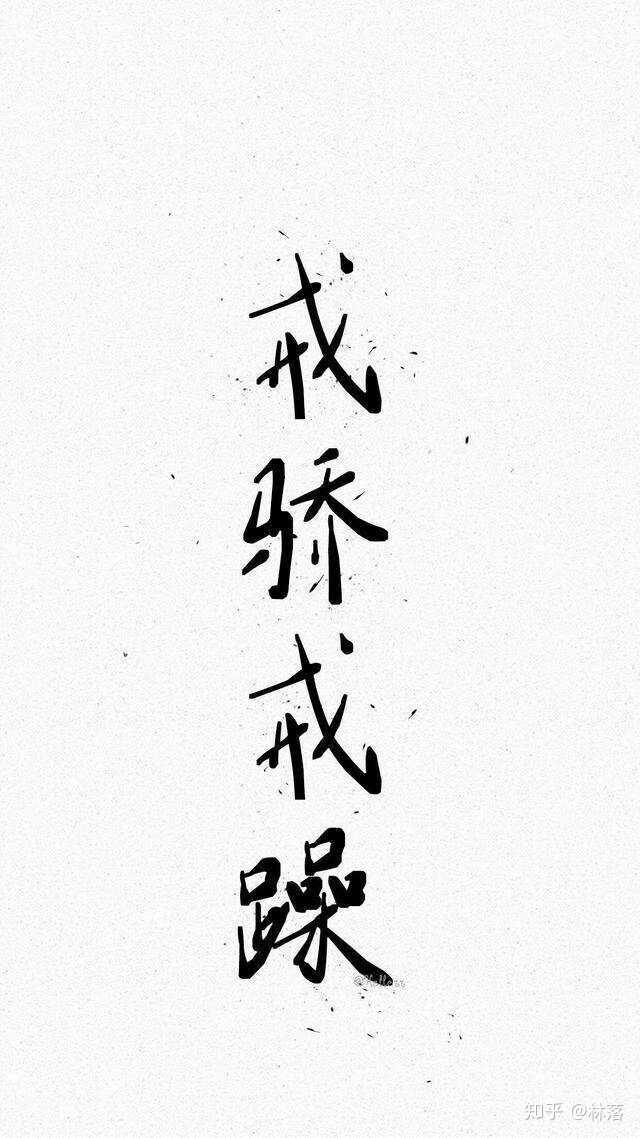 戒骄戒躁
知乎 @林落